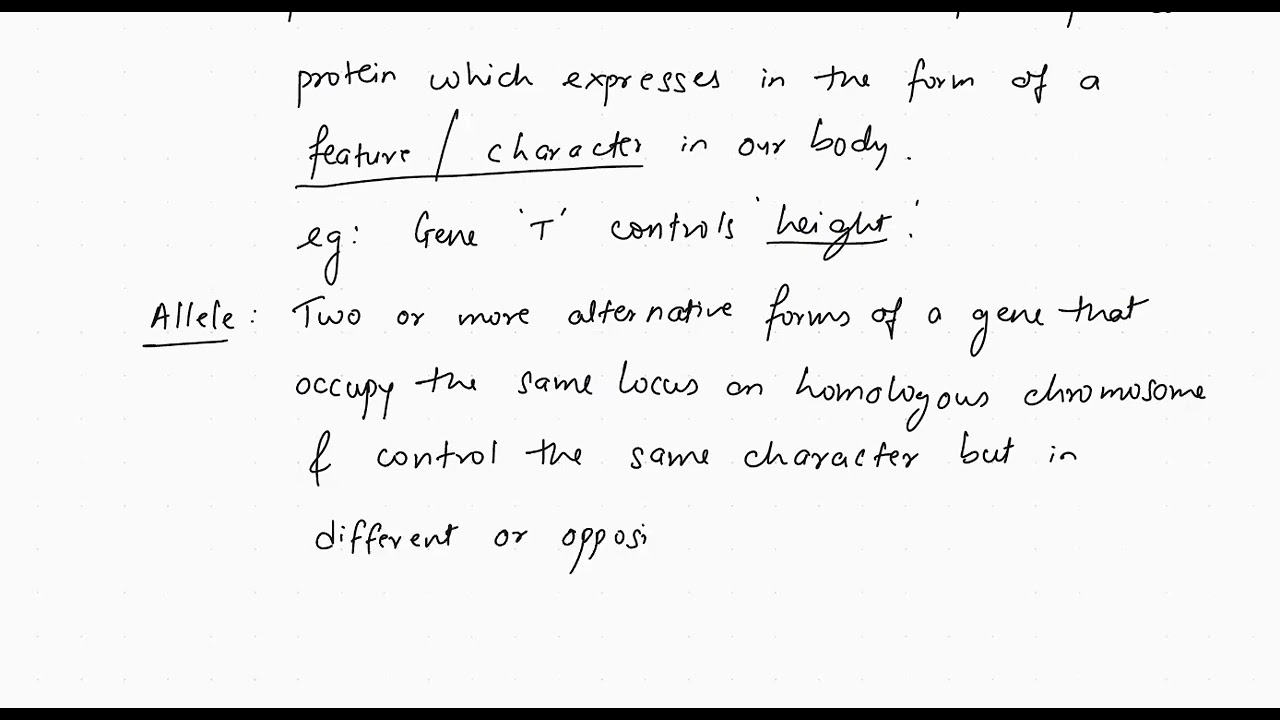 protein which expresses in the form of a
feature / character in our body.
eg: Gene 'T' controls 'height'.
Allele: Two or more alternative forms of a gene that
occupy the same locus on homologous chromosome
& control the same character but in
different or opposi